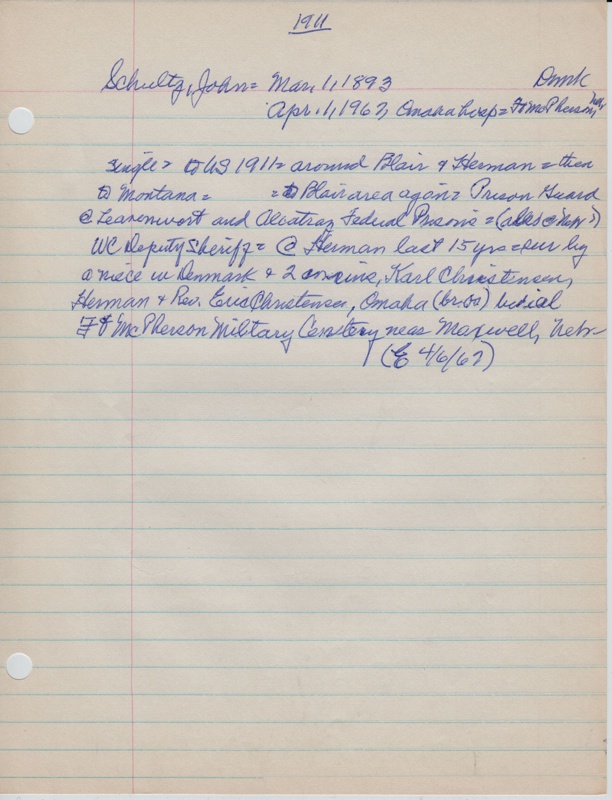 1911
Schultz, John = Mar. 1, 1893 Dmk
Apr. 1, 1962, Omaha hosp = Ft McPherson, Neb,
single = to US 1911 = around Blair & Herman = then
to Montana = = to Blair area again = Prison Guard
@ Leavenwort and Alcatraz Federal Prisons =
WC Deputy Sheriff = @ Herman last 15 yrs = sur by
a niece in Denmark & 2 cousins, Karl Christensen,
Herman & Rev. Eric Christensen, Omaha (bros) burial
Ft McPherson Military Cemetery near Maxwell, Nebr
(E 4/6/62)